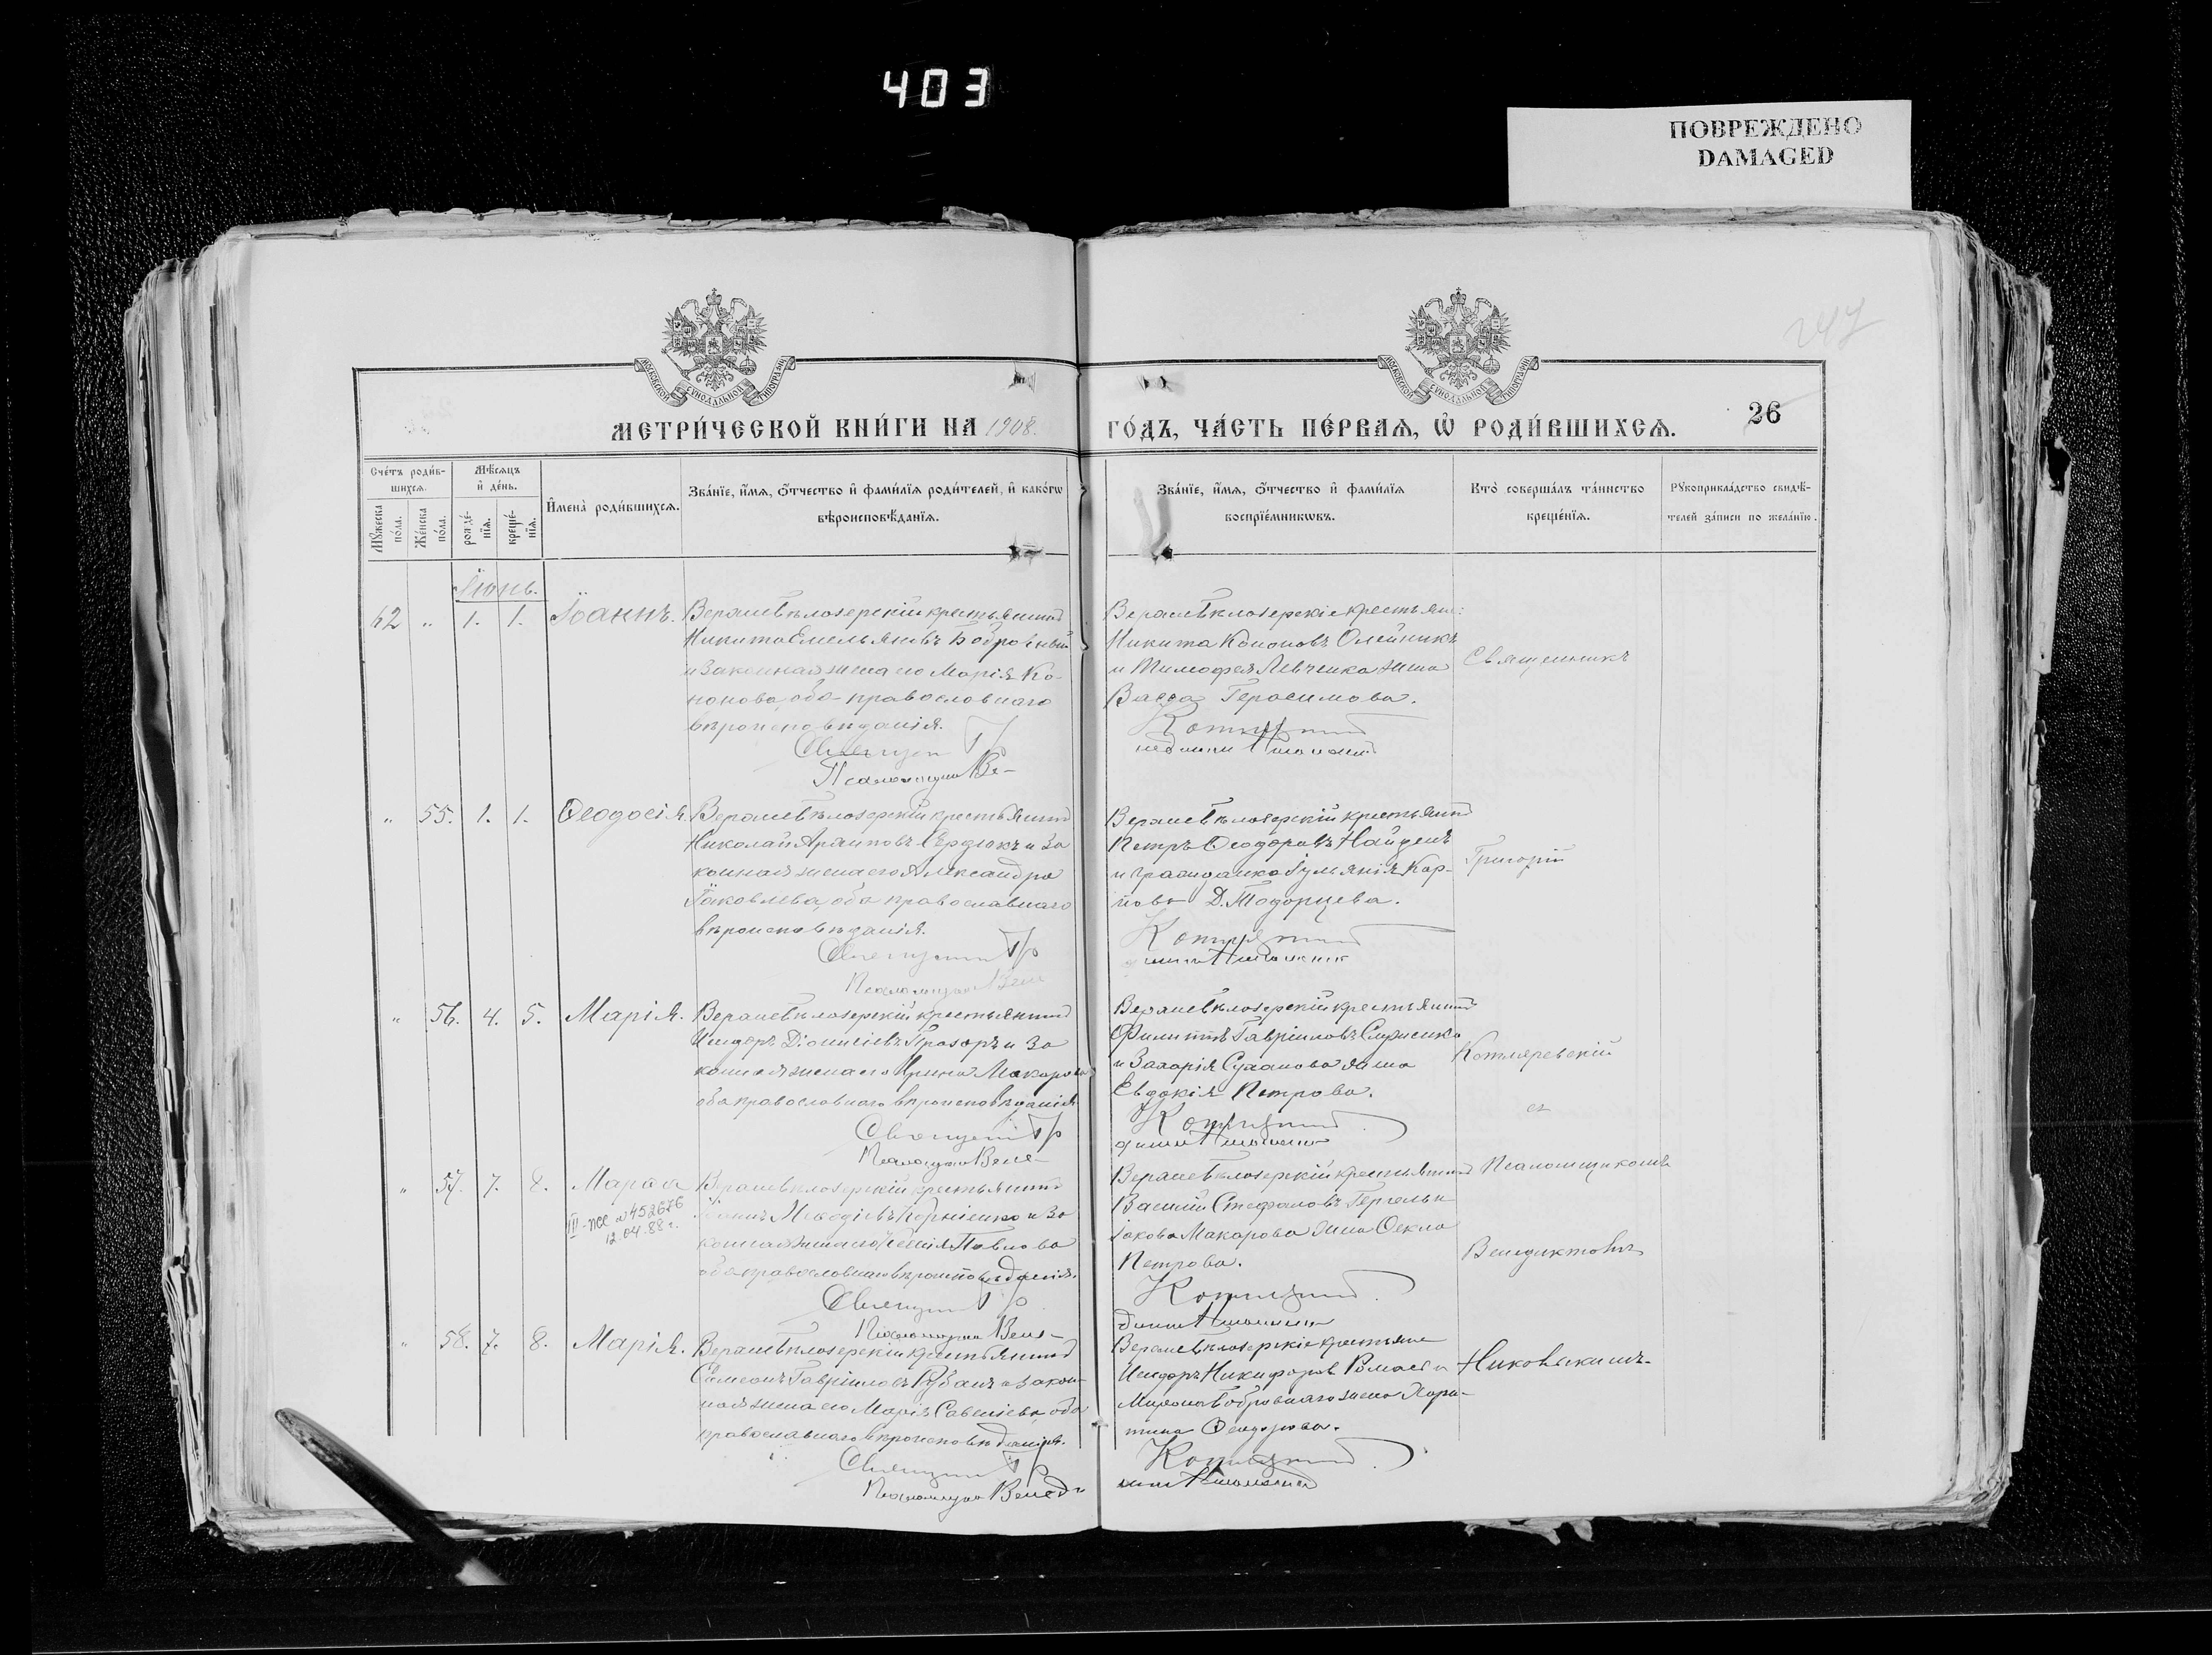 403
ПОВРЕЖДЕНО
DAMAGED
247
МОСКОВСКОЙ СУНОДАЛЬНОЙ ТИПОГРАФІИ
МОСКОВСКОЙ СУНОДАЛЬНОЙ ТИПОГРАФІИ
МЕТРИ́ЧЕСКОЙ КНИ́ГИ НА 1908.
ГО́ДЪ, ЧА́СТЬ ПЕ́РВАѦ, Ѡ҆ РОДИ́ВШИХСѦ. 26
Сче́тъ роди́в-
шихсѧ.
Мꙋ́жеска по́ла.
Же́нска по́ла.
Мѣ́сѧцъ
и҆ де́нь.
рожде́-
нїѧ.
креще́-
нїѧ.
И҆мена̀ роди́вшихсѧ.
Зва́нїе, и҆́мѧ, ѻ҆́тчество и҆ фами́лїѧ роди́телей, и҆ како́гѡ
вѣроисповѣ́данїѧ.
Зва́нїе, и҆́мѧ, ѻ҆́тчество и҆ фами́лїѧ
воспрїе́мникѡвъ.
Кто̀ соверша́лъ та́инство
креще́нїѧ.
Рꙋкоприкла́дство свидѣ́-
телей за́писи по жела́нїю.
Іюнь.
62 " 1. 1. Іоаннъ.
Верхнебѣлозерскій крестьянинъ
Никита Емельяновъ Бобровный
и законная жена его Марія Ко-
нонова, оба православнаго
вѣроисповѣданія.
Священ Гр
Псаломщик Ве-
Верхнебѣлозерскіе крестьяне:
Никита Кононовъ Олейникъ
и Тимофея Левченка жена
Васса Герасимова.
Священникъ
" 55. 1. 1. Ѳеодосія.
Верхнебѣлозерскій крестьянинъ
Николай Архиповъ Сердюкъ и за
конная жена его Александра
Іаковлева, оба православнаго
вѣроисповѣданія.
Гр
Верхнебѣлозерскій крестьянинъ
Петръ Ѳеодоровъ Найденъ
и гражданка Іульянія Кар-
пова Д. Тодорцева.
Григорій
" 56. 4. 5. Марія.
Верхнебѣлозерскій крестьянинъ
Исидоръ Діонисіевъ Прозоръ и за
конная жена его Ирина Макарова
оба православнаго вѣроисповѣданія
Гр
Псаломщик Вене-
Верхнебѣлозерскій крестьянинъ
Филиппъ Гавріиловъ
и Захарія Суханова жена
Евдокія Петрова.
Котляревскій
съ
" 57. 7. 8. Марѳа
III-ЖС №452676
12.04.88 г.
Верхнебѣлозерскій крестьянинъ
Іоаннъ Меѳодіевъ Корніенко и за
конная жена его Павлова
оба православнаго вѣроисповѣданія.
Псаломщик Вене-
Верхнебѣлозерскій крестьянинъ
Василій Стефановъ
Іакова Макарова жена Ѳекла
Петрова.
Псаломщикомъ
Венедиктомъ
" 58. 7. 8. Марія.
Верхнебѣлозерскій крестьянинъ
Симеонъ Гавріиловъ Рубанъ и закон-
ная жена его Марія Савеліева оба
православнаго вѣроисповѣданія.
Псаломщик Венед-
Верхнебѣлозерскіе крестьяне
Исидоръ Никифоровъ
Мирона Бобровнаго жена Хари-
тина Ѳеодорова.